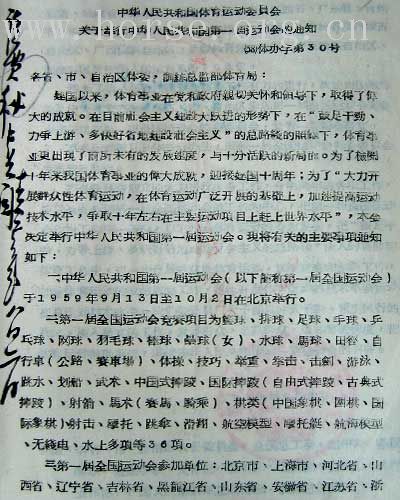 中华人民共和国体育运动委员会
关于举行中华人民共和国第一届运动会的通知
(58)体办字第30号
各省、市、自治区体委，训练总监部体育局：
建国以来，体育事业在党和政府亲切关怀和领导下，取得了伟
大的成就。在目前社会主义建设大跃进的形势下，在“鼓足干劲、
力争上游、多快好省地建设社会主义”的总路线的照耀下，体育事
业更出现了前所未有的发展速度，与十分活跃的新局面。为了检阅
十年来我国体育事业的伟大成就，迎接建国十周年；为了“大力开
展群众性体育运动，在体育运动广泛开展的基础上，加速提高运动
技术水平，争取十年左右在主要运动项目上赶上世界水平”，本会
决定举行中华人民共和国第一届运动会。现将有关的主要事项通知
如下：
一、中华人民共和国第一届运动会（以下简称第一届全国运动会）
于1959年9月13日至10月2日在北京举行。
二、第一届全国运动会竞赛项目为篮球、排球、足球、手球、乒
乓球、网球、羽毛球、棒球、垒球（女）、水球、马球、田径、自
行车（公路、赛车场）、体操、技巧、举重、拳击、击剑、游泳、
跳水、划船、武术、中国式摔跤、国际摔跤（自由式摔跤、古典式
摔跤）、射箭、马术（赛马、骑乘）、棋类（中国象棋、围棋、国
际象棋）射击、摩托、跳伞、滑翔、航空模型、摩托艇、航海模型
、无线电、水上多项等36项。
三、第一届全国运动会参加单位：北京市、上海市、河北省、山
西省、辽宁省、吉林省、黑龙江省、山东省、安徽省、江苏省、浙